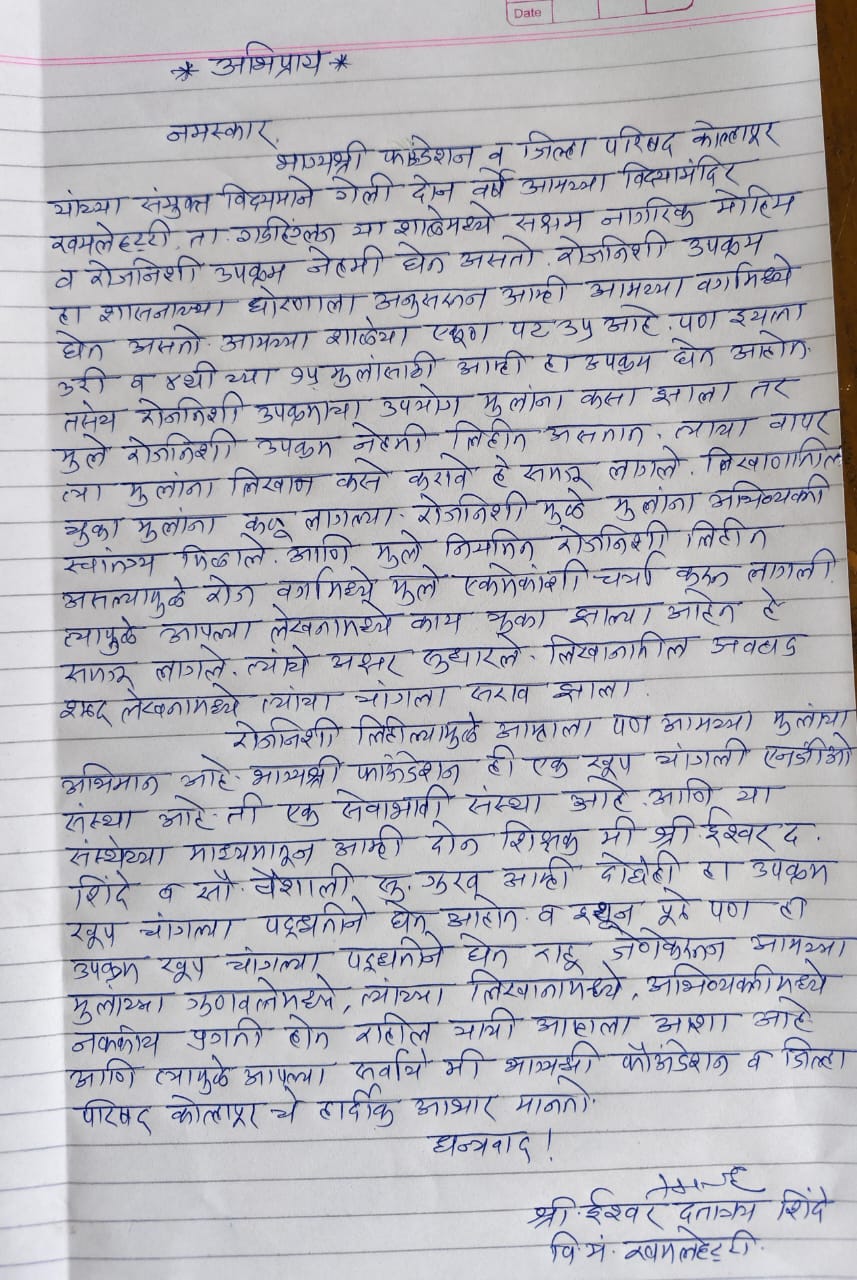 Date
* अभिप्राय *
नमस्कार,
भाग्यश्री फाउंडेशन व जिल्हा परिषद कोल्हापूर
यांच्या संयुक्त विद्यमाने गेली दोन वर्षे आमच्या विद्यामंदिर
खमलेहट्टी, ता. गडहिंग्लज या शाळेमध्ये सक्षम नागरिक मोहिम
व रोजनिशी उपक्रम नेहमी घेत असतो. रोजनिशी उपक्रम
हा शासनाच्या धोरणाला अनुसरून आम्ही आमच्या वर्गामध्ये
घेत असतो. आमच्या शाळेचा एकूण पट ३५ आहे. पण इयत्ता
३री व ४थी च्या १५ मुलांसाठी आम्ही हा उपक्रम घेत आहोत.
तसेच रोजनिशी उपक्रमाचा उपयोग मुलांना कसा झाला तर
मुले रोजनिशी उपक्रम नेहमी लिहीत असतात. त्याचा वापर
त्या मुलांना लिखाण कसे करावे हे समजू लागले. लिखाणातील
चुका मुलांना कळू लागल्या. रोजनिशी मुळे मुलांना अभिव्यक्ती
स्वातंत्र्य मिळाले. आणि मुले नियमित रोजनिशी लिहीत
असल्यामुळे रोज वर्गामध्ये मुले एकमेकांशी चर्चा करू लागली.
त्यामुळे आपल्या लेखनामध्ये काय चुका झाल्या आहेत हे
समजू लागले. त्यांचे अक्षर सुधारले. लिखानातील अवघड
शब्द लेखनामध्ये त्यांचा चांगला सराव झाला.
रोजनिशी लिहील्यामुळे आम्हाला पण आमच्या मुलांचा
अभिमान आहे. भाग्यश्री फाऊंडेशन ही एक खूप चांगली एनजीओ
संस्था आहे. ती एक सेवाभावी संस्था आहे. आणि या
संस्थेच्या माध्यमातून आम्ही दोन शिक्षक मी श्री. ईश्वर द.
शिंदे व सौ. वैशाली कृ. गुरव आम्ही दोघेही हा उपक्रम
खूप चांगल्या पद्धतीने घेत आहोत. व इथून पुढे पण हा
उपक्रम खूप चांगल्या पद्धतीने घेत राहू जेणेकरून आमच्या
मुलांच्या गुणवत्तेमध्ये, त्यांच्या लिखानामध्ये, अभिव्यक्तीमध्ये
नक्कीच प्रगती होत राहील याची आम्हाला आशा आहे
आणि त्यामुळे आपल्या सर्वांचे मी भाग्यश्री फौंउंडेशन व जिल्हा
परिषद कोल्हापूर चे हार्दीक आभार मानतो.
धन्यवाद!
श्री. ईश्वर दत्तात्रय शिंदे
वि. मं. खमलेहट्टी.